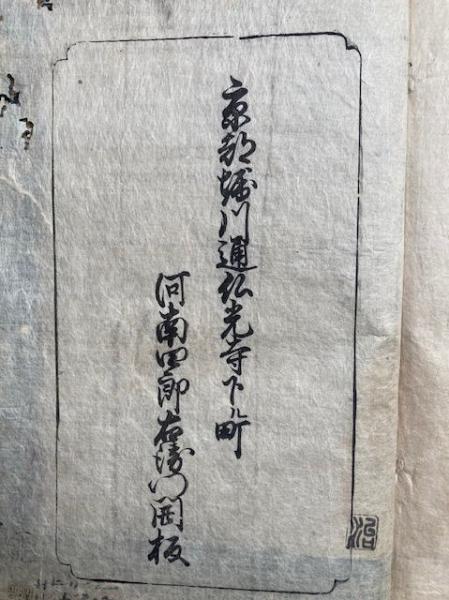 京都堀川通仏光寺下ル町
河南四郎右衛門開板